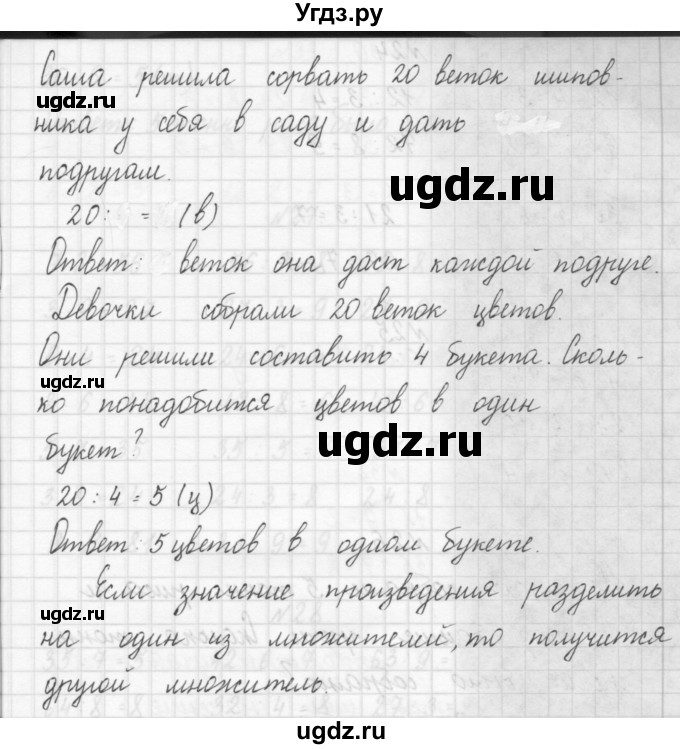 Угдз.ру
Саша решила сорвать 20 веток шипов-
ugdz.ru
ника у себя в саду и дать
подругам.
ugdz.ru
20: = (в)
Ответ: веток она даст каждой подруге.
Девочки собрали 20 веток цветов.
Они решили составить 4 букета. Сколь-
ugdz.ru
ко понадобится цветов в один
букет?
ugdz.ru
20:4=5 (ц)
Ответ: 5 цветов в одаом букете.
Если значение произведения разделить
ugdz.ru
на один из множителей, то получится
другой множитель
ugdz.ru